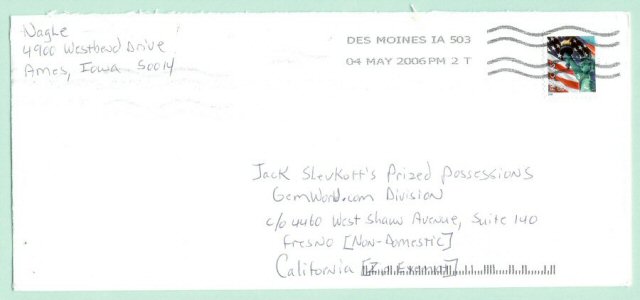 Nagle
4900 Westbend Drive
Ames, Iowa 50014
DES MOINES IA 503
04 MAY 2006 PM 2 T
Jack Slevkoff's Prized Possessions
GemWorld.com Division
c/o 4460 West Shaw Avenue, Suite 140
Fresno [Non-Domestic]
California [Zip Exempt]